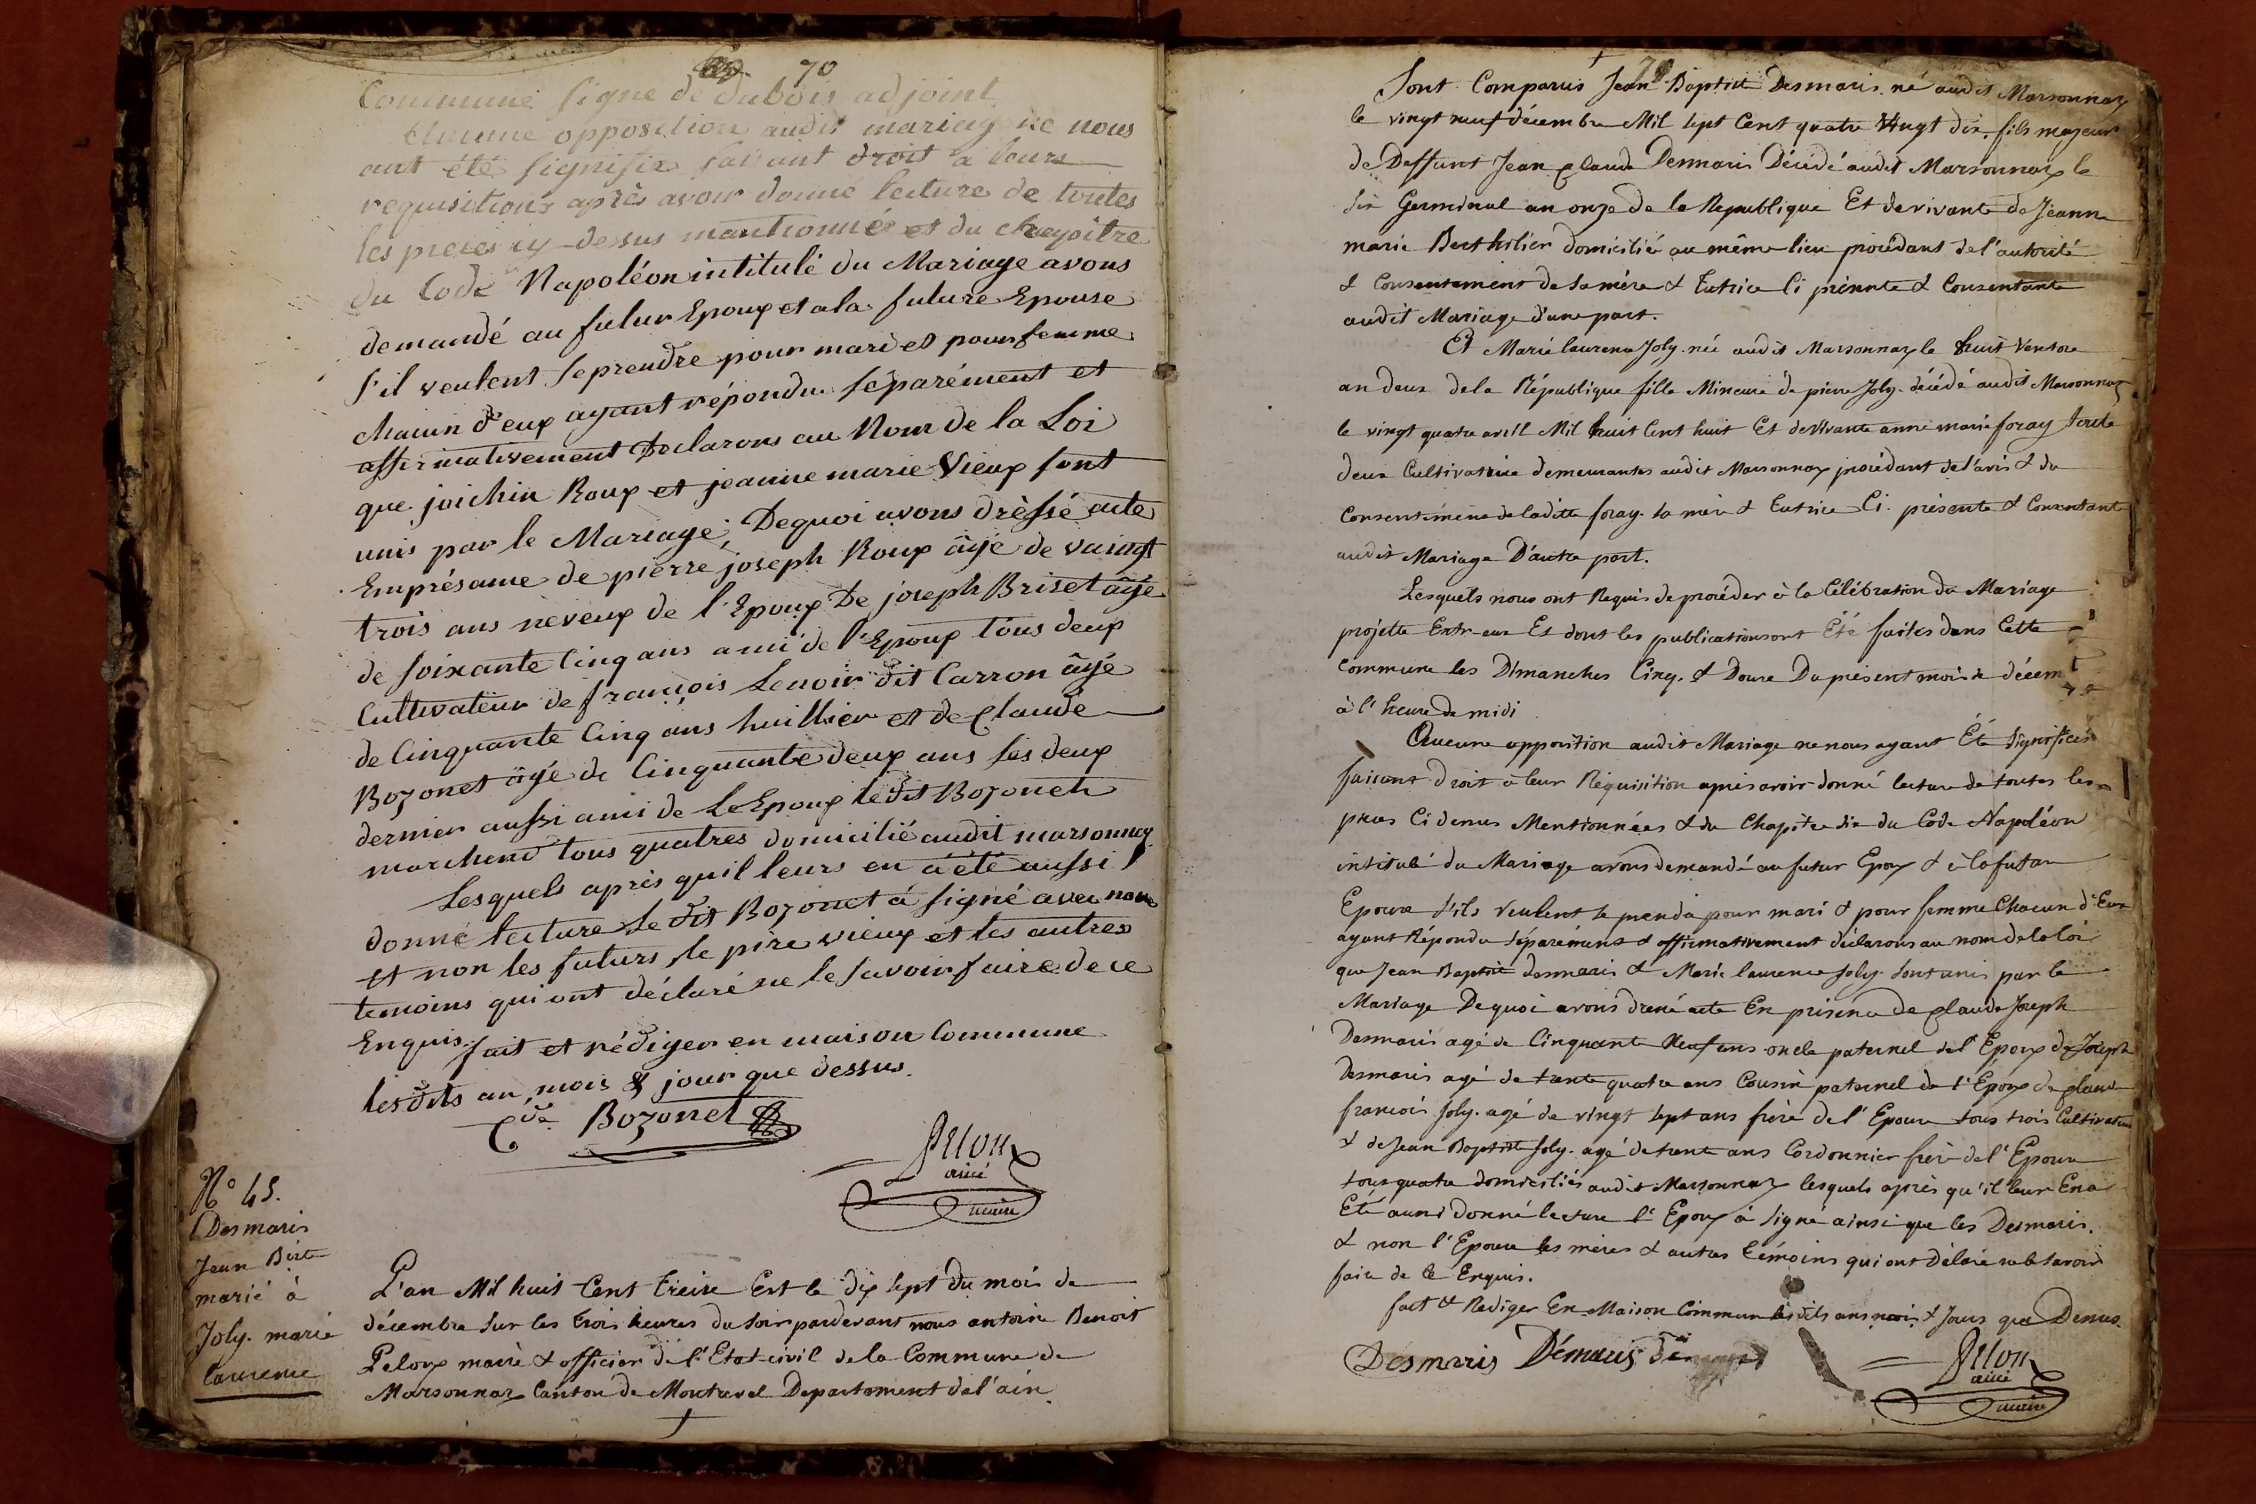 70
Commune signe de dubois adjoint
Aucune opposition audit mariage ne nous
ant été signifiée faisant droit a leurs
requisitions après avoir donné lecture de toutes
les pieces cy-dessus mantionné et du chapitre
du Code Napoléon intitulé du Mariage avons
demandé au futur Epoux et a la future Epouse
s'il veulent se prendre pour mari et pour femme
chacun d'eux ayant répondu séparément et
affirmativement Déclarons au Nom de la Loi
que joichin Roux et jeanne marie Vieux sont
unis par le Mariage; Dequoi avons dréssé acte
En présance de pierre joseph Roux âgé de vaingt
trois ans neveux de l'Epoux De joseph Briset âgé
de soixante Cinq ans ami de l'Epoux tous deux
Cultivateur de françois Lenoir dit Carron âgé
de Cinquante Cinq ans huillier et de Claude
Bozonet âgé de Cinquante deux ans les deux
dernier aussi ami de LeEpoux le dit Bozonet
marchend tous quatres domicilié audit marsonnay
Lesquels après quil leurs en a été aussi
donné lecture Le dit Bozonet á signé avec nous
et non les futurs, le père vieux et les autres
temoins qui ont déclaré ne le savoir faire de ce
Enquis. fait et rédiger en maison Commune
les dits an, mois & jour que dessus.
Cde Bozonet
Pelon
ainé
maire
N° 45.
Desmaris
Jean Bte
marié à
Joly. marie
laurence
L'an Mil huit Cent treize Est le dix sept du mois de
décembre sur les trois heures du soir pardevant nous antoine Benoit
Peloux maire & officier de l'Etat civil de la Commune de
Marsonnaz Canton de Montrevel Departement de l'ain.
Sont Comparus Jean Baptiste Desmaris né audit Marsonnay
le vingt neuf décembre Mil sept Cent quatre vingt dix, fils majeur
de Deffunt Jean Claude Desmaris Décédé audit Marsonnay le
dix Germinal an onze de la République Et de vivante de Jeanne
marie Berthilier domicilié au même lieu procédant de l'autorité
& Consentement de sa mère & Tutrice Ci présente & Consentante
audit Mariage d'une part.
Et Marie laurence Joly. née audit Marsonnay le huit Ventose
an deux de la République fille Mineure de pierre Joly. décédé audit Marsonnay
le vingt quatre avril Mil huit Cent huit Et de vivante anne marie foray toute
deux Cultivatrice demeurantes audit Marsonnay procédant de l'avis & du
Consentement de ladite foray. sa mère & Tutrice Ci. présente & Consentante
audit Mariage D'autre part.
Lesquels nous ont Requis de procéder à la Célébration du Mariage
projetté Entr-eux Et dont les publications ont Eté faites dans Cette
Commune les Dimanches Cinq. & Douze Du présent mois de décem
à l'heure de midi
Aucune opposition audit Mariage ne nous ayant Été signifiée
faisant droit à leur Réquisition après avoir donné lecture de toutes les
pièces Ci dessus Mentionnées & du Chapitre six du Code Napoléon
intitulé du Mariage avons demandé au futur Epoux & à la future
Epouse s'ils veulent se prendre pour mari & pour femme Chacun d'Eux
ayant Répondu Séparément & affirmativement déclarons au nom de la loi
que Jean Baptiste desmaris & Marie laurence Joly. sont unis par le
Mariage De quoi avons dressé acte En présence de Claude Joseph
Desmaris agé de Cinquante Neuf ans oncle paternel de l'Epoux de Joseph
Desmaris agé de trente quatre ans Cousin paternel de l'Epoux de Claude
francois Joly. agé de vingt sept ans frère de l'Epouse tous trois Cultivateurs
& de Jean Baptiste Joly. agé de trente ans Cordonnier frère de l'Epouse
tous quatre domiciliés audit Marsonnay lesquels après qu'il leur En a
Eté aussi donné lecture l'Epoux à signé ainsi que les Desmaris.
& non l'Epouse les mères & autres témoins qui ont Déclaré ne le savoir
faire de ce Enquis.
fait & Rediger En Maison Commune les dits ans mois & Jours que Dessus.
Desmaris Démaris
Pelon
ainé
maire